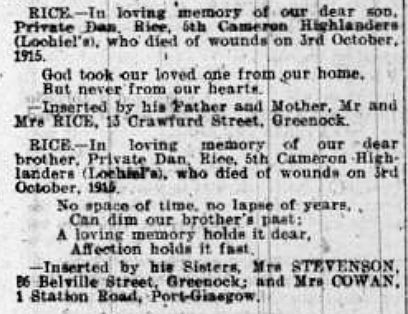 RICE.—In loving memory of our dear son,
Private Dan, Rice, 5th Cameron Highlanders
(Lochiel's), who died of wounds on 3rd October,
1915.
God took our loved one from our home,
But never from our hearts.
—Inserted by his Father and Mother, Mr and
Mrs RICE, 13 Crawfurd Street, Greenock.
RICE.—In loving memory of our dear
brother, Private Dan, Rice, 5th Cameron High-
landers (Lochiel's), who died of wounds on 3rd
October, 1915.
No space of time, no lapse of years,
Can dim our brother's past;
A loving memory holds it dear,
Affection holds it fast.
—Inserted by his Sisters, Mrs STEVENSON,
86 Belville Street, Greenock; and Mrs COWAN,
1 Station Road, Port-Glasgow.